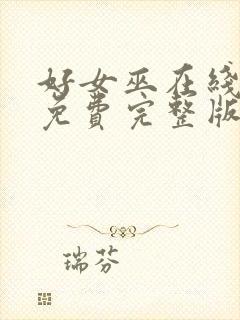 好女巫在线
免费完整版
瑞芬